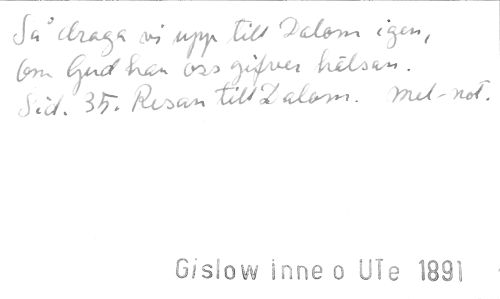 Så draga vi upp till Dalom igen,
Om Gud han oss gifver hälsan.
Sid. 35. Resan till Dalom. Mel-not.
Gislow inne o UTe 1891